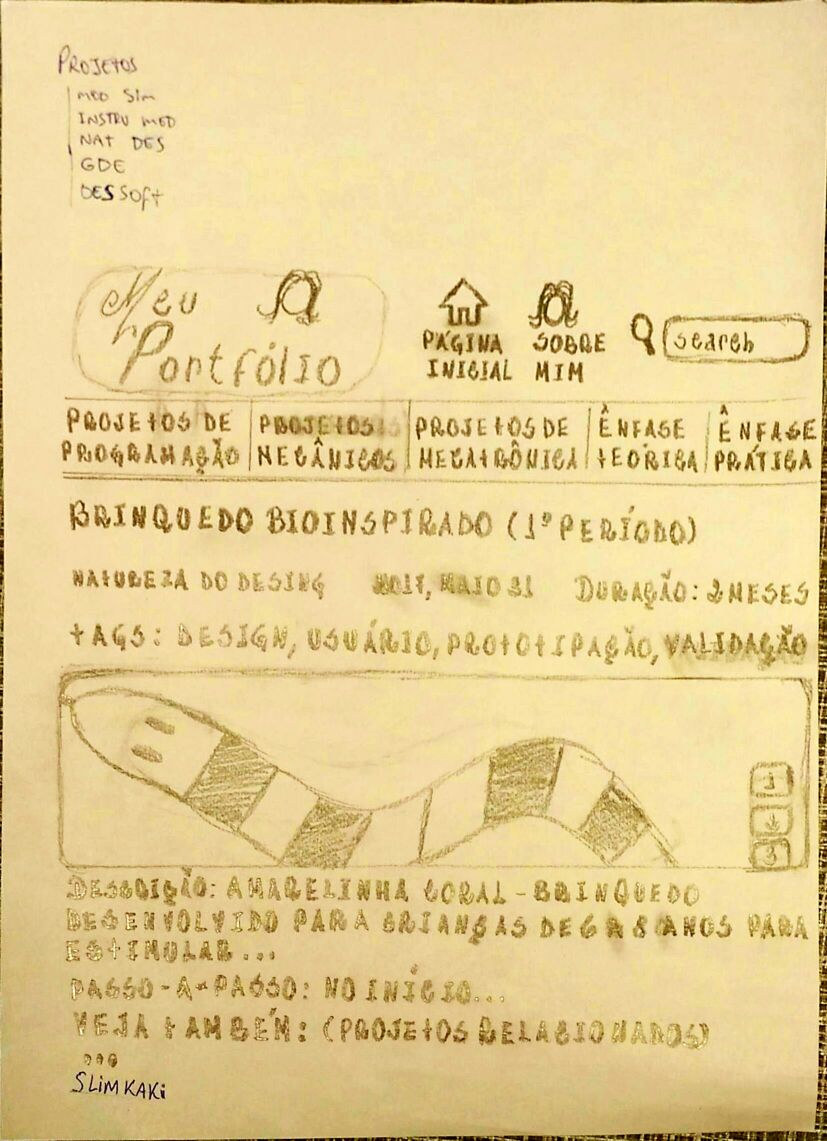 PROJETOS
MOD SIM
INSTRU MED
NAT DES
GDE
DESSOFT
Meu
Portfólio
PÁGINA
INICIAL
SOBRE
MIM
search
PROJETOS DE
PROGRAMAÇÃO
PROJETOS
MECÂNICOS
PROJETOS DE
MECATRÔNICA
ÊNFASE
TEÓRICA
ÊNFASE
PRÁTICA
BRINQUEDO BIOINSPIRADO (1º PERÍODO)
NATUREZA DO DESING MAIO DURAÇÃO: 2 MESES
TAGS: DESIGN, USUÁRIO, PROTOTIPAÇÃO, VALIDAÇÃO
1
2
3
DESCRIÇÃO: AMARELINHA CORAL - BRINQUEDO
DESENVOLVIDO PARA CRIANÇAS DE 6 A 8 ANOS PARA
ESTIMULAR...
PASSO-A-PASSO: NO INÍCIO...
VEJA TAMBÉM: (PROJETOS RELACIONADOS)
...
SLIMKAKI